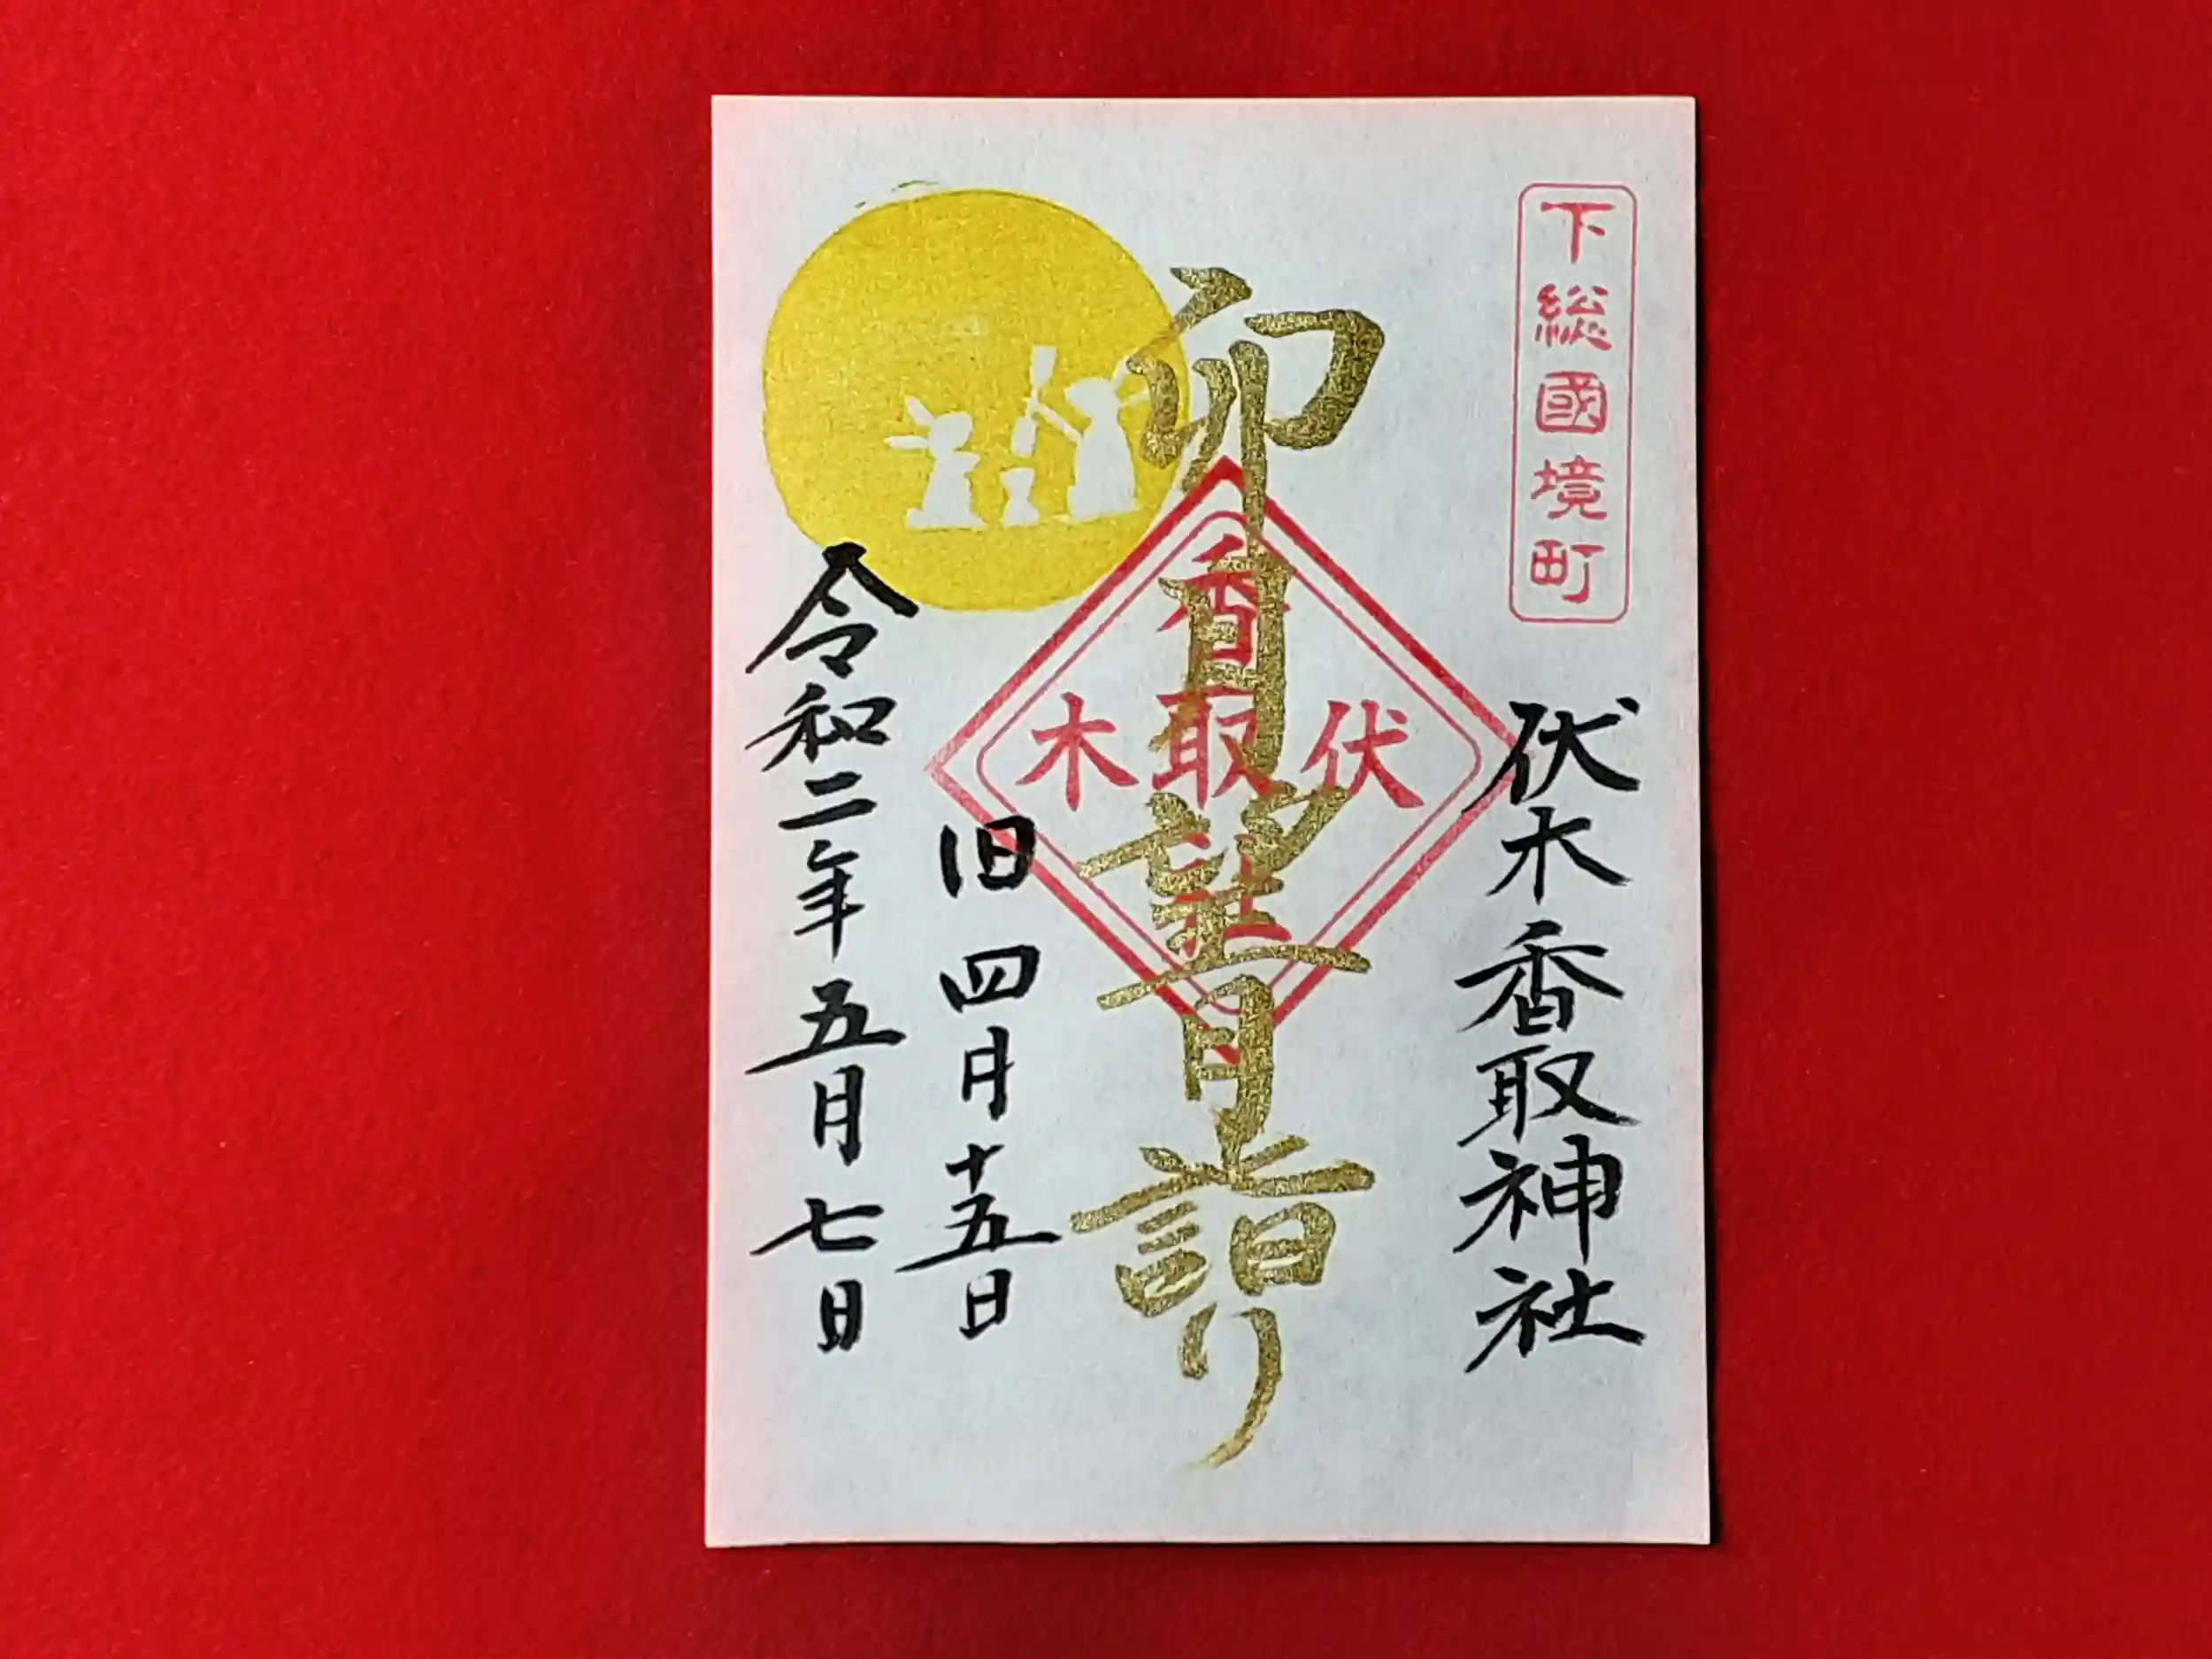 下総國境町
伏木香取神社
卯月望月詣り
伏木
香取社
旧四月十五日
令和二年五月七日